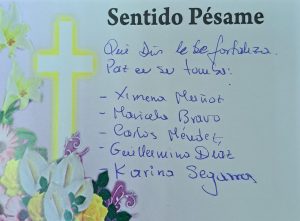 Sentido Pésame
Que Dios le de fortaleza.
Paz en su tumba:
- Ximena Muñoz
- Marcela Bravo
- Carlos Méndez,
- Guillermina Díaz
Karina